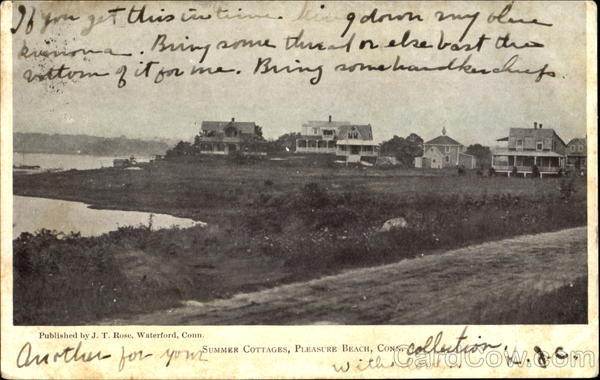 If you get this in time. bring down my blue
kimona. Bring some thread or else bast the
bottom of it for me. Bring some handkerchiefs
Published by J. T. Rose, Waterford, Conn.
Summer Cottages, Pleasure Beach, Conn.
Another for your collection.
with
CardCow.com